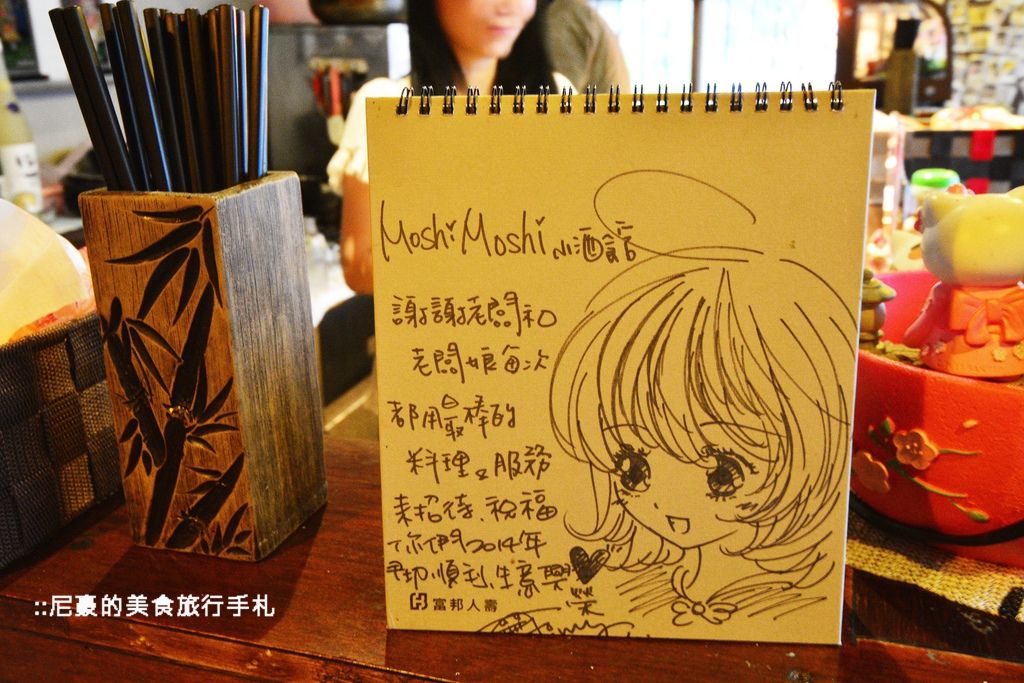 Moshi Moshi 小酒館
謝謝老闆和
老闆娘每次
都用最棒的
料理、服務
來招待、祝福
你們2014年
一切順利、生意興
榮
富邦人壽
::尼豪的美食旅行手札